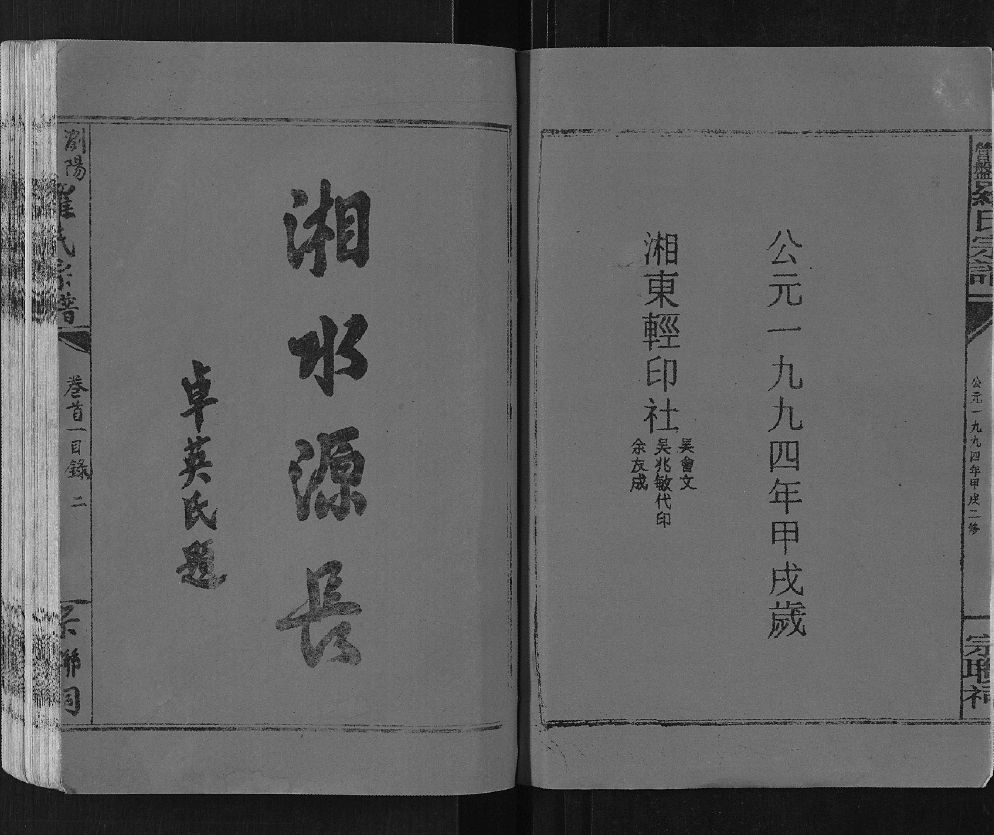 營盤羅氏宗譜
公元一九九四年甲戌二修
宗聯祠
公元一九九四年甲戌歲
湘東輕印社
吴會文
吴兆敏代印
余友成
湘水源長
卓英氏題
瀏陽
羅氏宗譜
卷首一目錄 二
宗聯祠